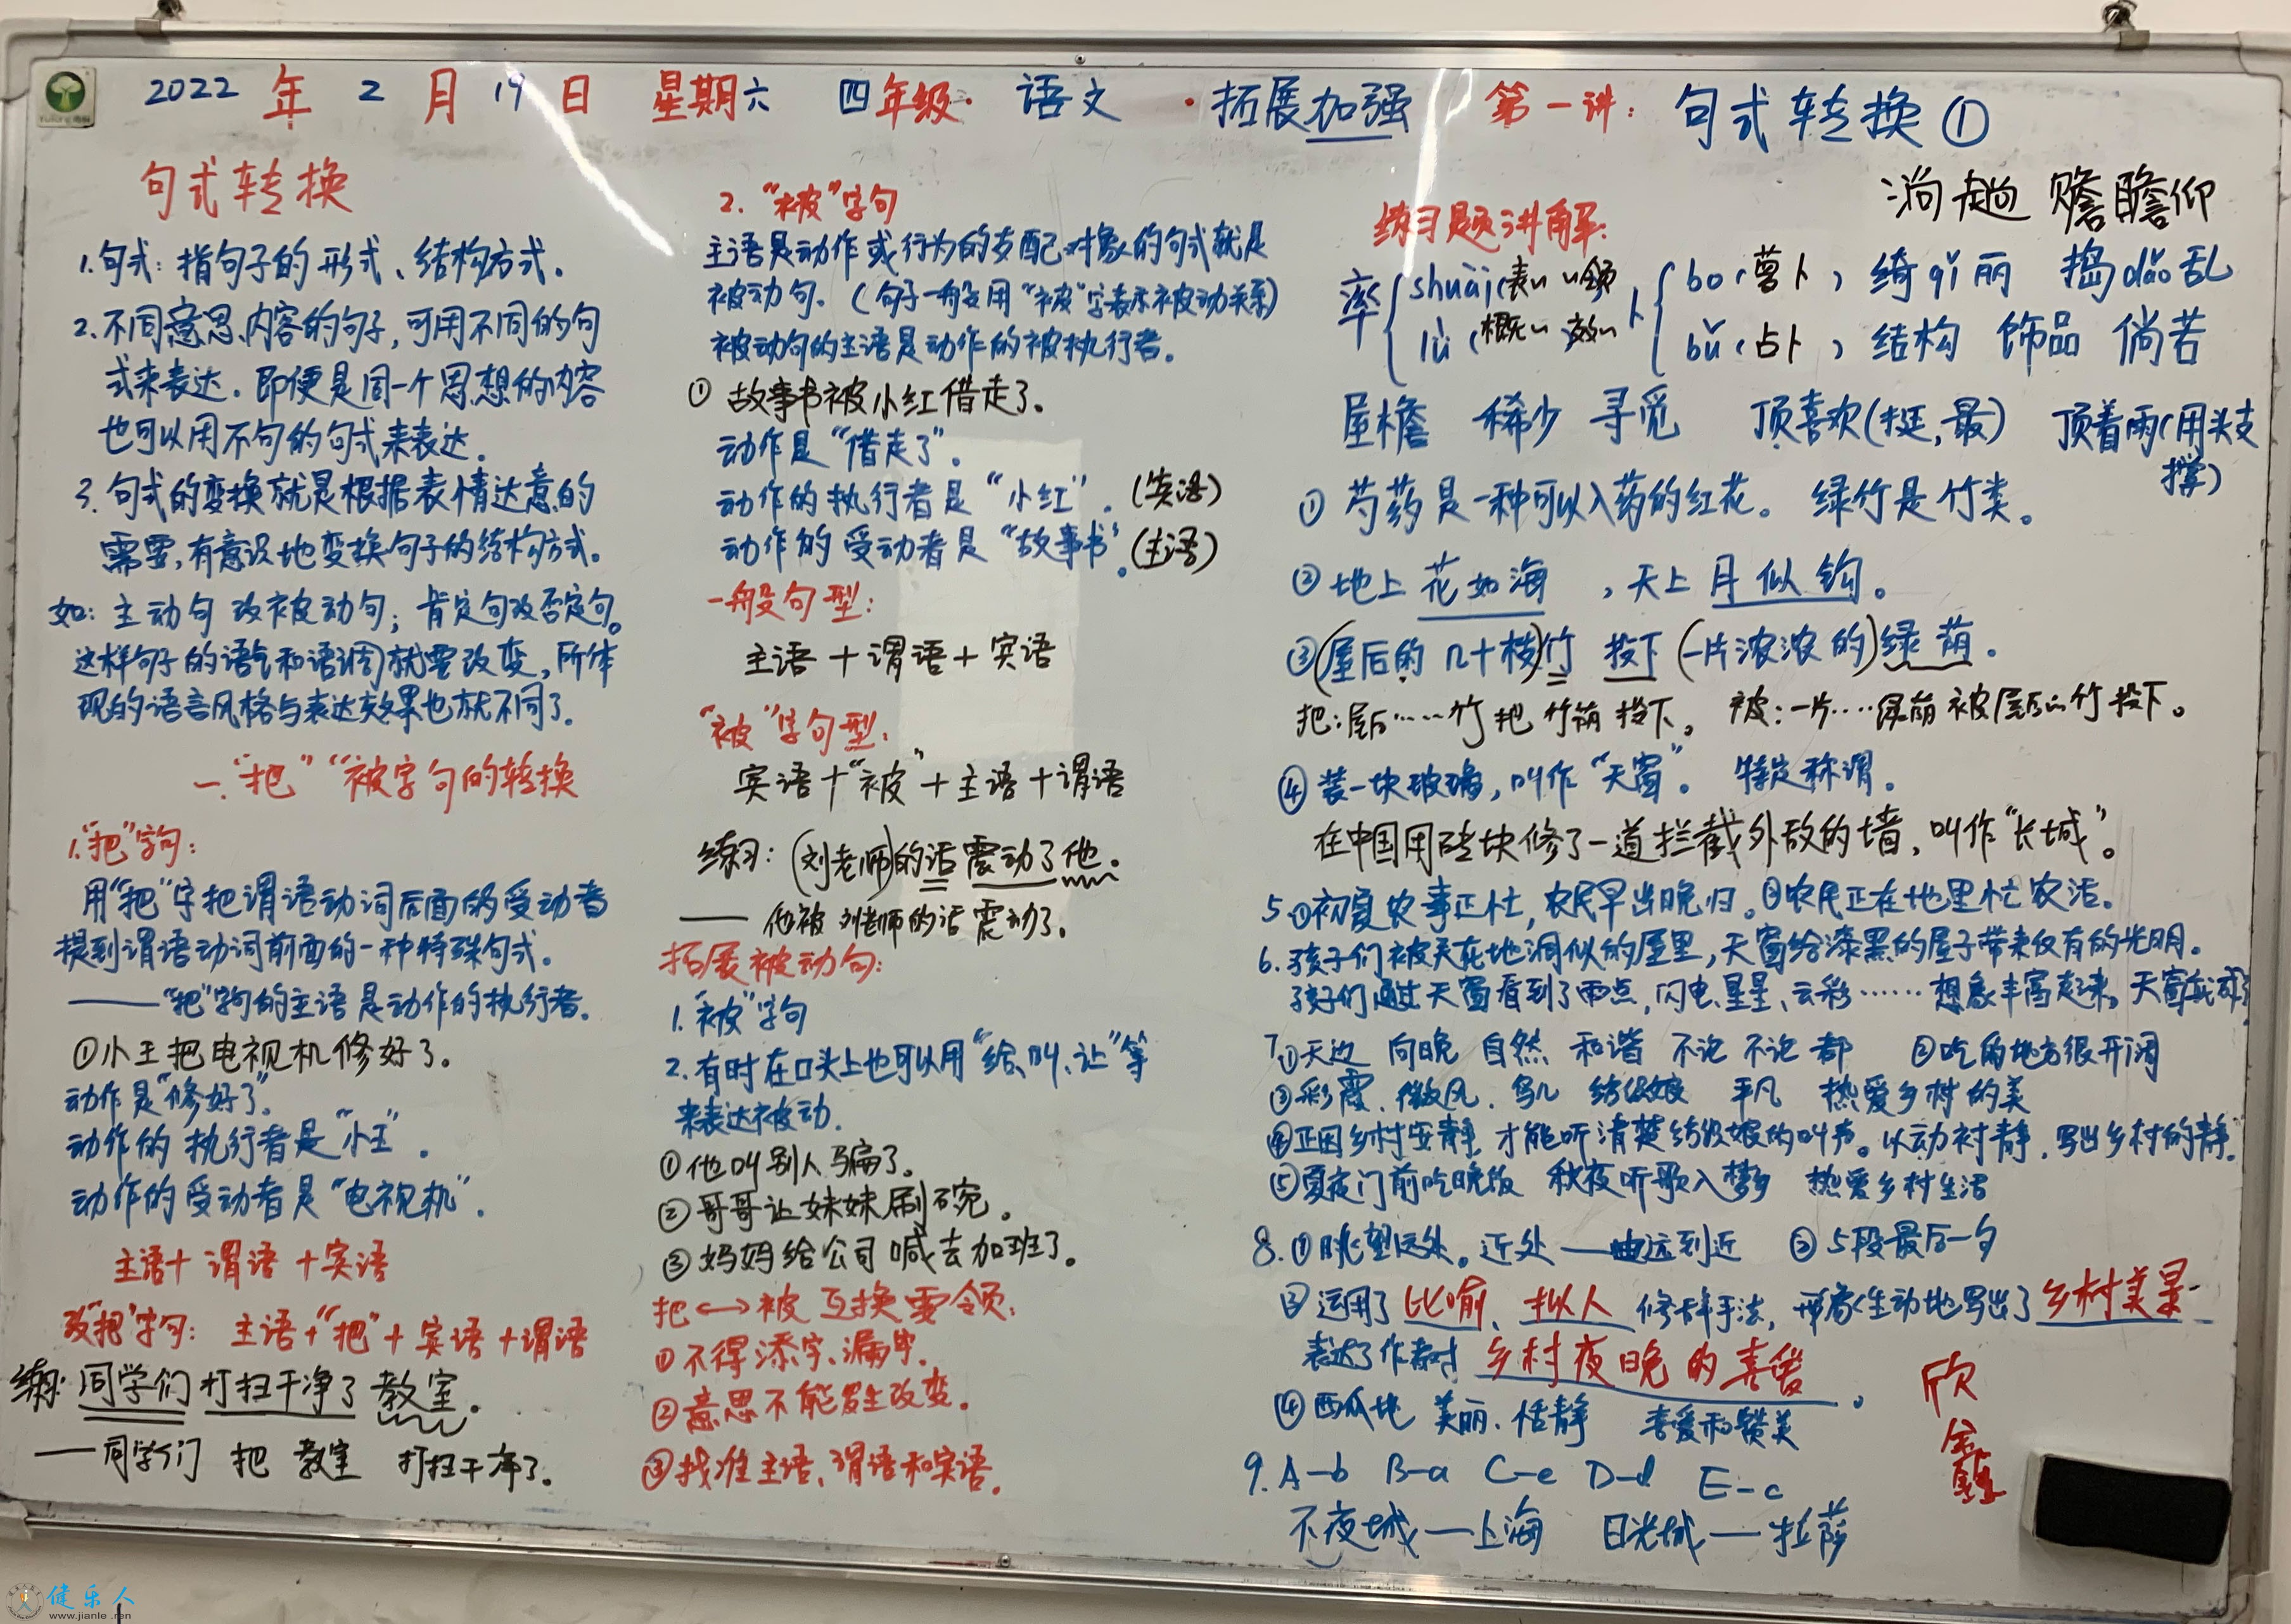 2022 年 2 月 19 日 星期六 四年级· 语文 · 拓展加强 第一讲: 句式转换①
句式转换
1.句式:指句子的形式、结构方式。
2.不同意思、内容的句子,可用不同的句
式来表达.即便是同一个思想的内容
也可以用不句的句式来表达。
3.句式的变换就是根据表情达意的
需要,有意识地变换句子的结构方式。
如:主动句改被动句;肯定句改否定句。
这样句子的语气和语调就要改变,所体
现的语言风格与表达效果也就不同了。
一.“把”“被字句的转换
1.“把”字句:
用“把”字把谓语动词后面的受动者
提到谓语动词前面的一种特殊句式。
——“把”字句的主语是动作的执行者。
①小王把电视机修好了。
动作是“修好了”。
动作的执行者是“小王”.
动作的受动者是“电视机”.
主语+谓语+宾语
改“把”字句:主语+“把”+宾语+谓语
练习:同学们打扫干净了教室。
——同学们 把 教室 打扫干净了。
2.“被”字句
主语是动作或行为的支配对象的句式就是
被动句.(句子一般用“被”字表示被动关系)
被动句的主语是动作的被执行者。
①故事书被小红借走了。
动作是“借走了”。
动作的执行者是“小红”.(宾语)
动作的受动者是“故事书”。(主语)
一般句型:
主语+谓语+宾语
“被”字句型:
宾语+“被”+主语+谓语
练习:(刘老师)的话震动了他。
—— 他被刘老师的话震动了。
拓展被动句:
1.“被”字句
2.有时在口头上也可以用“给、叫、让”等
来表达被动.
①他叫别人骗了。
②哥哥让妹妹刷碗。
③妈妈给公司喊去加班了。
把←→被 互换要领:
①不得添字、漏字.
②意思不能发生改变。
③找准主语、谓语和宾语。
淌 趟 赡瞻仰
练习题讲解:
率 shuài(表~ ~领 卜 bo(萝卜) 绮qǐ丽 捣dǎo乱
lǜ(概~ 效~ bǔ(占卜) 结构 饰品 倘若
屋檐 稀少 寻觅 顶喜欢(挺,最) 顶着雨(用头支
撑)
①芍药是一种可以入药的红花。绿竹是竹类。
②地上花如海,天上月似钩。
③(屋后的几十枝)竹 投下(一片浓浓的)绿荫。
把:屋后……竹把竹荫投下。 被:一片……绿荫被屋后~竹投下。
④装一块玻璃,叫作“天窗”。特定称谓。
在中国用砖块修了一道拦截外敌的墙,叫作“长城”。
5.①初夏农事正忙,农民早出晚归。②农民正在地里忙农活。
6.孩子们被关在地洞似的屋里,天窗给漆黑的屋子带来仅有的光明。
孩子们通过天窗看到了雨点,闪电、星星、云彩……想象丰富起来。天窗
7.①天边 向晚 自然 和谐 不论 不论 都 ②吃的地方很开阔
③彩霞、微风、鸟儿 纺织娘 平凡 热爱乡村的美
④正因乡村安静,才能听清楚纺织娘的叫声。以动衬静,写出乡村的静.
⑤夏夜门前吃晚饭 秋夜听歌入梦乡 热爱乡村生活
8.①眺望远处。近处——由远到近 ②5段最后一句
③运用了比喻、拟人修辞手法,形象生动地写出了乡村美景
表达了作者对乡村夜晚的喜爱。
④西瓜地 美丽、恬静 喜爱和赞美
欣
鑫
9.A-b B-a C-e D-d E-c
不夜城——上海 日光城——拉萨
健乐人
www.jianle.ren